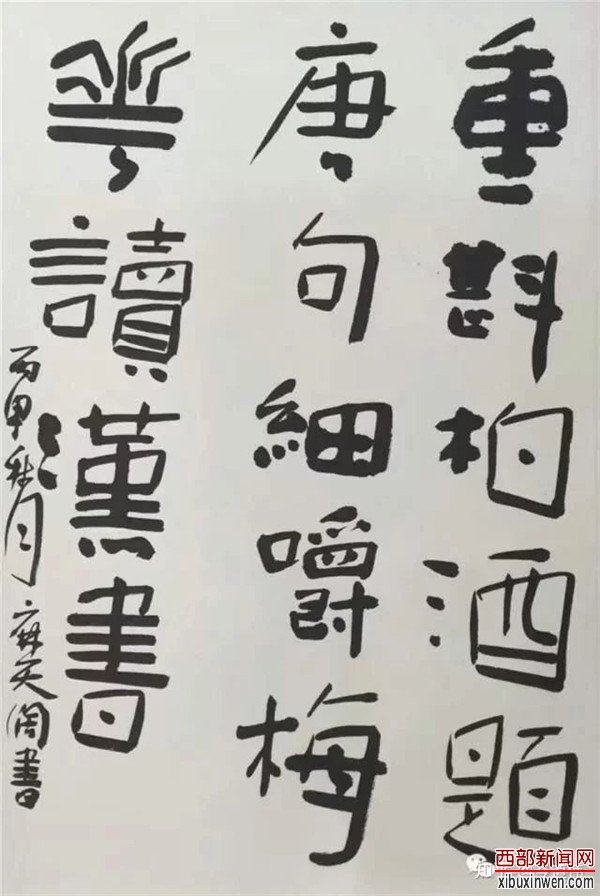 重斟柏酒題
唐句細嚼梅
華讀漢書
丙申秋月 麻天闊書
西部新闻网
xibuxinwen.com